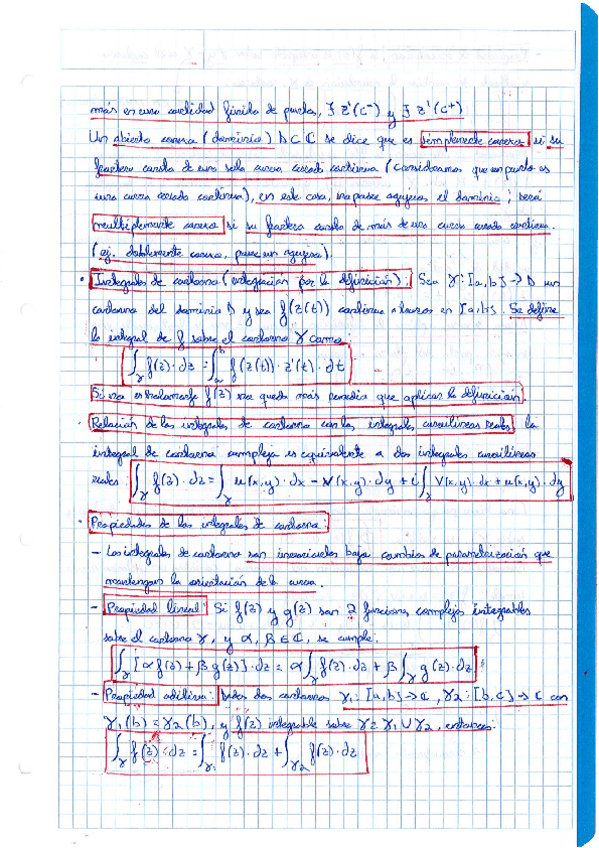 más en una cantidad finita de puntos, ∃ z'(c⁻) y ∃ z'(c⁺)
Un abierto conexo (dominio) D ⊂ ℂ se dice que es simplemente conexo si su
frontera consta de una sola curva cerrada continua (consideramos que un punto es
una curva cerrada continua), en este caso, no posee agujeros el dominio; será
multiplemente conexo si su frontera consta de más de una curva cerrada continua.
(ej. doblemente conexo, posee un agujero).
• Integrales de contorno (integración por la definición): Sea γ: [a,b] → D un
contorno del dominio D y sea f(z(t)) continua a trozos en [a,b]. Se define
la integral de f sobre el contorno γ como:
∫_γ f(z)·dz = ∫_a^b f(z(t))·z'(t)·dt
Si no es holomorfa f(z) no queda más remedio que aplicar la definición.
· Relación de las integrales de contorno con las integrales curvilíneas reales: la
integral de contorno compleja es equivalente a dos integrales curvilíneas
reales: ∫_γ f(z)·dz = ∫_γ u(x,y)·dx − v(x,y)·dy + i∫_γ v(x,y)·dx + u(x,y)·dy
• Propiedades de las integrales de contorno:
– Las integrales de contorno son invariantes bajo cambios de parametrización que
mantengan la orientación de la curva.
– Propiedad lineal: Si f(z) y g(z) son 2 funciones complejas integrables
sobre el contorno γ, y α, β ∈ ℂ, se cumple:
∫_γ [αf(z) + βg(z)]·dz = α∫_γ f(z)·dz + β∫_γ g(z)·dz
– Propiedad aditiva: Dados dos contornos γ₁: [a,b] → ℂ, γ₂: [b,c] → ℂ con
γ₁(b) = γ₂(b), y f(z) integrable sobre γ = γ₁ ∪ γ₂, entonces:
∫_γ f(z)·dz = ∫_γ₁ f(z)·dz + ∫_γ₂ f(z)·dz